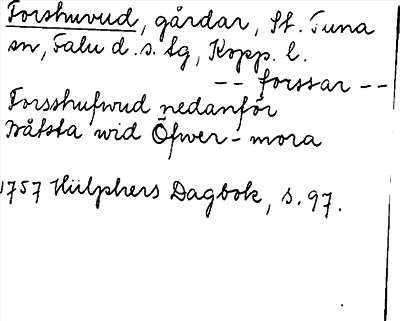 Forshuvud, gårdar, St. Tuna
sn, Falu d. s. tg, Kopp. l.
-- forssar --
Forsshufwud nedanför
Båtsta wid Öfwer-mora
1757 Hülphers Dagbok, s. 97.